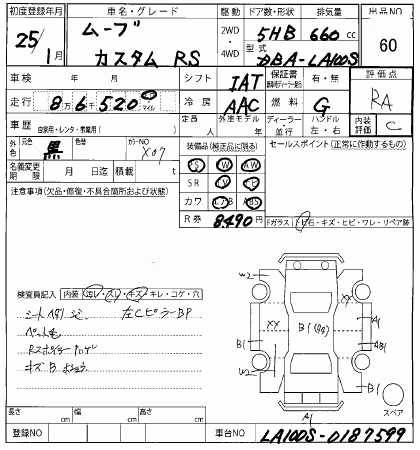 初度登録年月 車名・グレード 駆動 ドア数・形状 排気量 出品NO
25/1月 ムーブ カスタム RS 2WD・4WD 5HB 660cc 60
型式 DBA-LA100S
車検 年 月 シフト IAT 保証書 有・無 評価点
走行 8万6千520 マイル 冷房 AAC 燃料 G RA
車歴 自家用・レンタ・教習用( ) 定員 人 外車モデル 年 ディーラー・並行 ハンドル 左・右 内装評価 C
外色 元色 黒 色替 カラーNO X07
装備品(純正品に限る) セールスポイント(正常に作動するもの)
名義変更期限 月 日迄 積載 t
PS PW AW
SR
カワ エアB ABS
R券 8,490円
注意事項(欠品・修復・不具合箇所および状態)
Fガラス トビ石・キズ・ヒビ・ワレ・リペア跡
検査員記入 内装 ヨレ・スレ・キズ・キレ・コゲ・穴
シートヘタリ 左CピラーBP
ペット毛
Rスポイラー ハゲ
キズ B
W2
XX
XX
A1
B1(
B1
AB1
W2
B1
A1
スペア
長さ cm 幅 cm 高さ cm
登録NO 車台NO LA100S-0187599